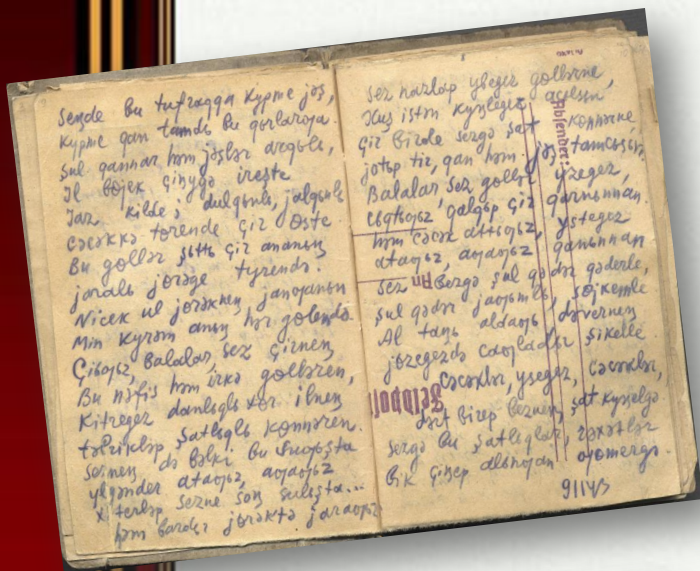 Sezde bu tufraqqa kypme jəş,
Kypme qan tamdь bu qarlaroja.
Şul qannar həm jəşlər arqьlь,
Il bəjek çiŋygə ireşte
Jaz kilde; dulqьnlь, jalqьnlь
Cəcəkkə tørende çir øste
Bu gøllər şьttь çir ananьŋ
jaralь jørəge tyrendə.
Nicek ul jørəkneŋ janƣanьn
Min kyrəm anьŋ hər gølendə
Çьjьƣьz, balalar, sez çirneŋ
Bu nəfis həm irkə gølləren,
Kitregez danlьqlь ilneŋ
təbrikləp şatlьqlь kønnəren.
də bəlki bu
ylgənder ataƣьz, aƣaƣьz
X terləp sezne soŋ sulьşta...
həm bardьr jørəktə jaraƣьz
Sez nazlap ybegez gøllərne,
Xuş isten kyŋlegez
Çir birde sezgə şat kønnərne
jotьp tir, qan həm jəş tamcьsьn.
Balalar, sez gøllər yzegez,
Cьqqoƣьz, qalqьp çir qarnьnnan.
həm cəcək attьƣьz, ystegez
ataƣьz, aƣaƣьz qanьnnan
Sez bezgə şul qədər qəderle,
şul qədər jaƣьmlь, søjkemle
Al taŋь aldaƣь dəverneŋ
jøzegezdə caƣьladьr şikelle
Cəcəklər, ysegez, cəcəklər,
dərt birep beznen, şat kyŋelgə
Sezgə bu şatlьqlar, rəxətlər
Bik çiŋep alьnƣan ƣomergə.
9/I 43
Absender:
An
Feldpost